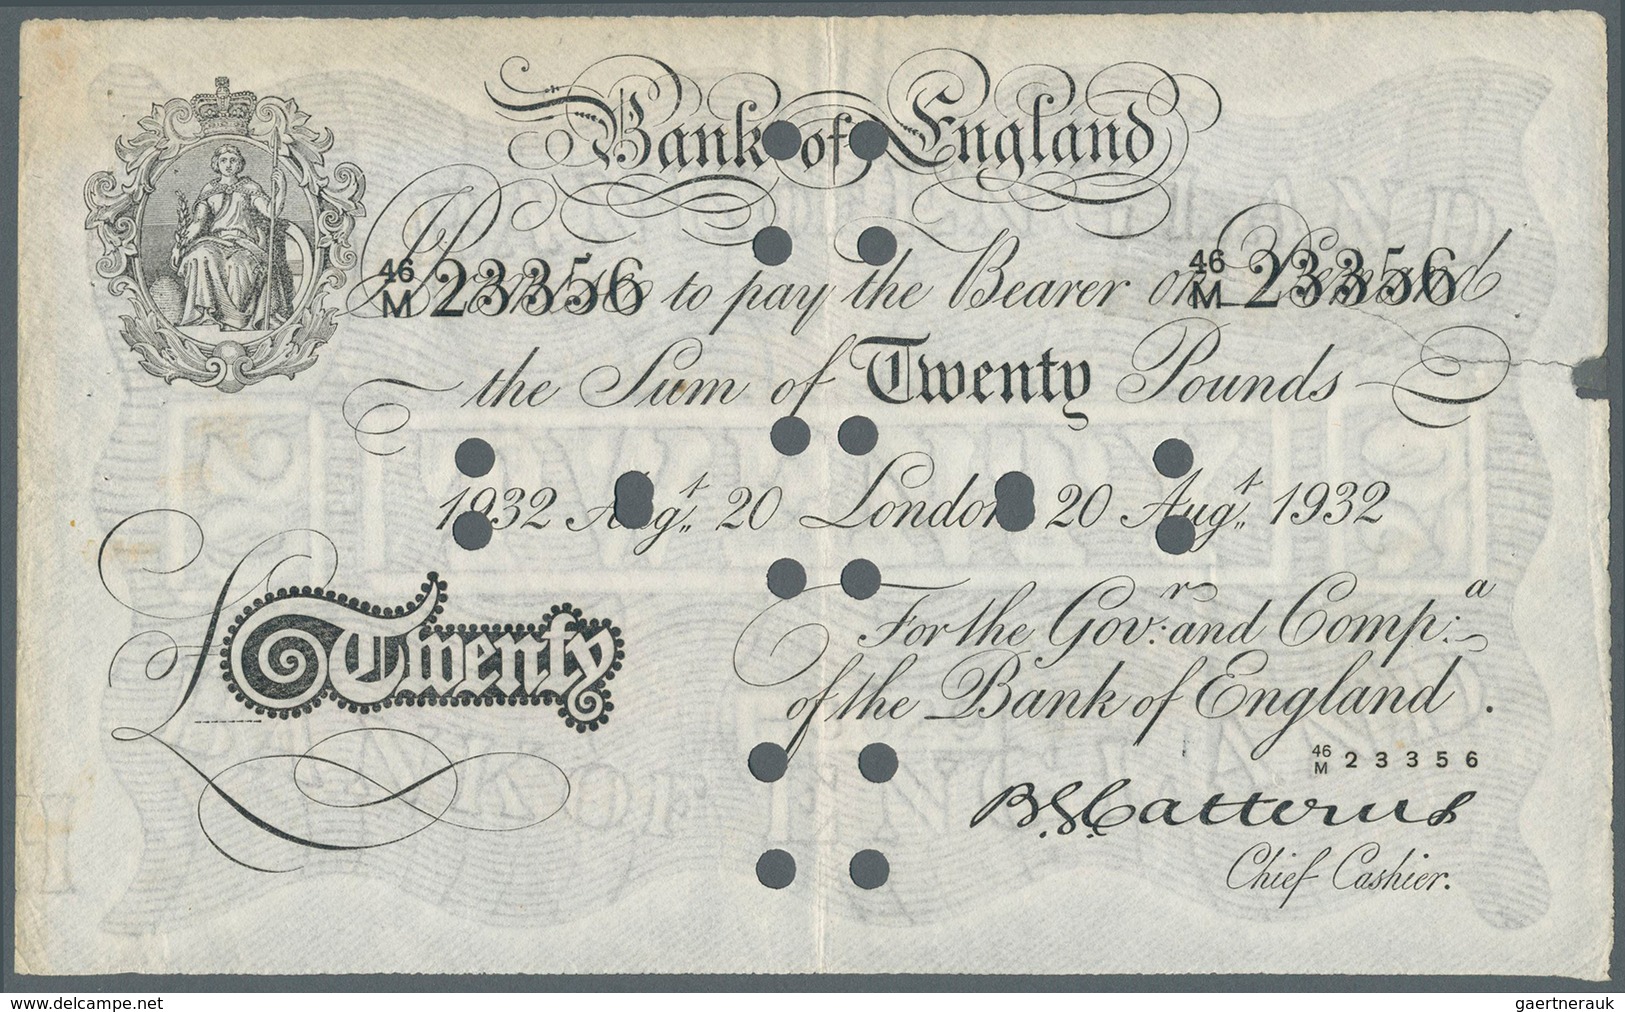 Bank of England
46/M 23356 46/M 23356
I Promise to pay the Bearer on Demand
the Sum of Twenty Pounds
1932 Augt. 20 London 20 Augt. 1932
For the Govr: and Compa:
£Twenty
of the Bank of England.
46/M 23356
B.G.Catterns
Chief Cashier.
www.delcampe.net
gaertnerauk